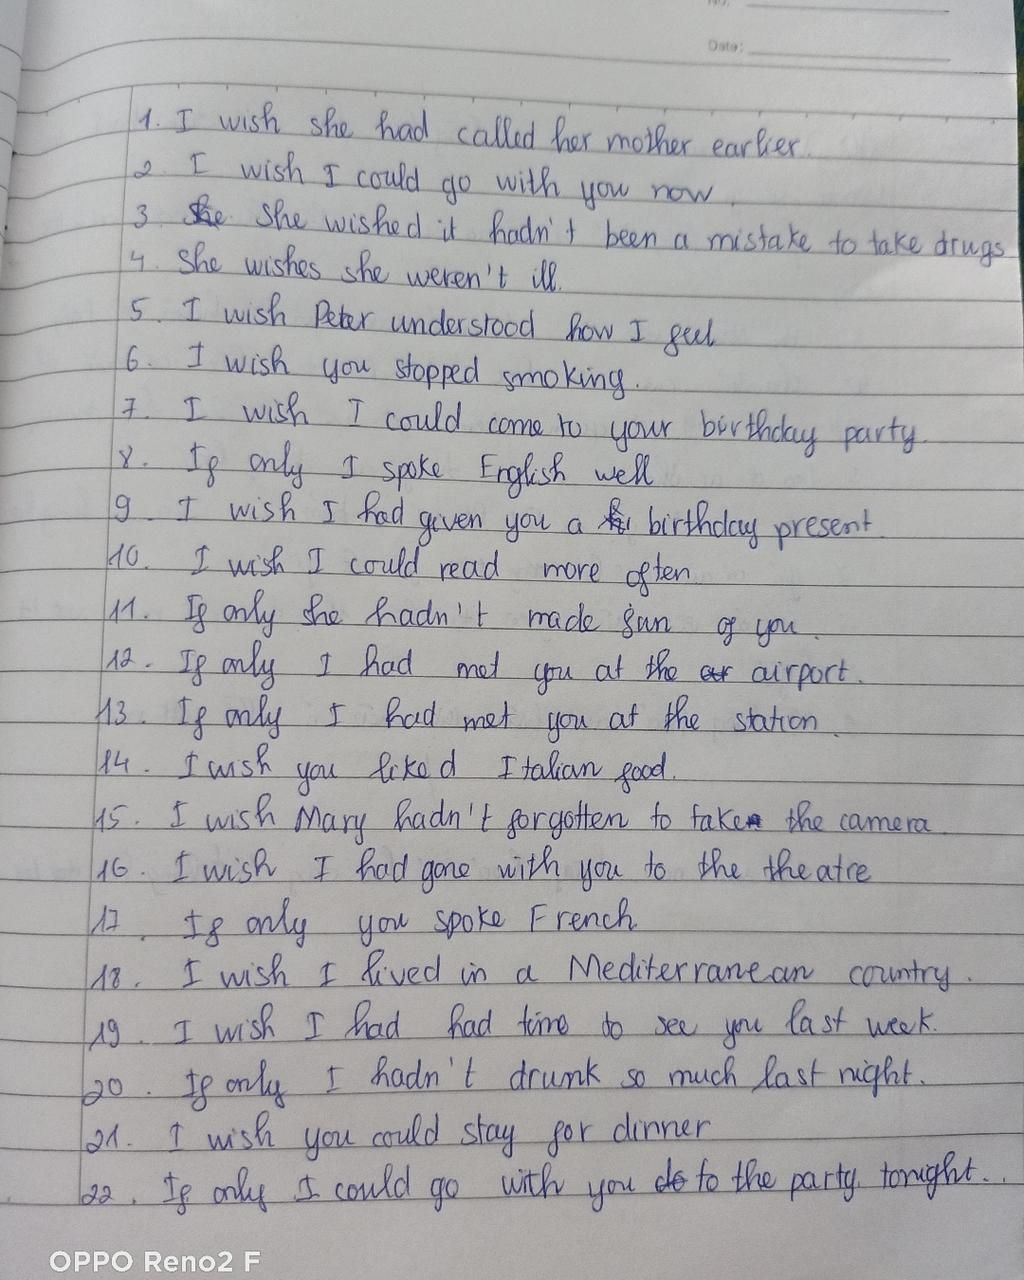 No.
Date:
1. I wish she had called her mother earlier.
2 I wish I could go with you now.
3 She wished it hadn't been a mistake to take drugs
4. She wishes she weren't ill.
5. I wish Peter understood how I feel
6. I wish you stopped smoking.
7. I wish I could come to your birthday party.
8. If only I spoke English well
9. I wish I had given you a birthday present.
10. I wish I could read more often
11. If only she hadn't made fun of you.
12. If only I had met you at the airport.
13. If only I had met you at the station.
14. I wish you liked Italian food.
15. I wish Mary hadn't forgotten to take the camera
16. I wish I had gone with you to the theatre
17. If only you spoke French
18. I wish I lived in a Mediterranean country.
19. I wish I had had time to see you last week.
20. If only I hadn't drunk so much last night.
21. I wish you could stay for dinner
22. If only I could go with you to the party tonight..
OPPO Reno2 F